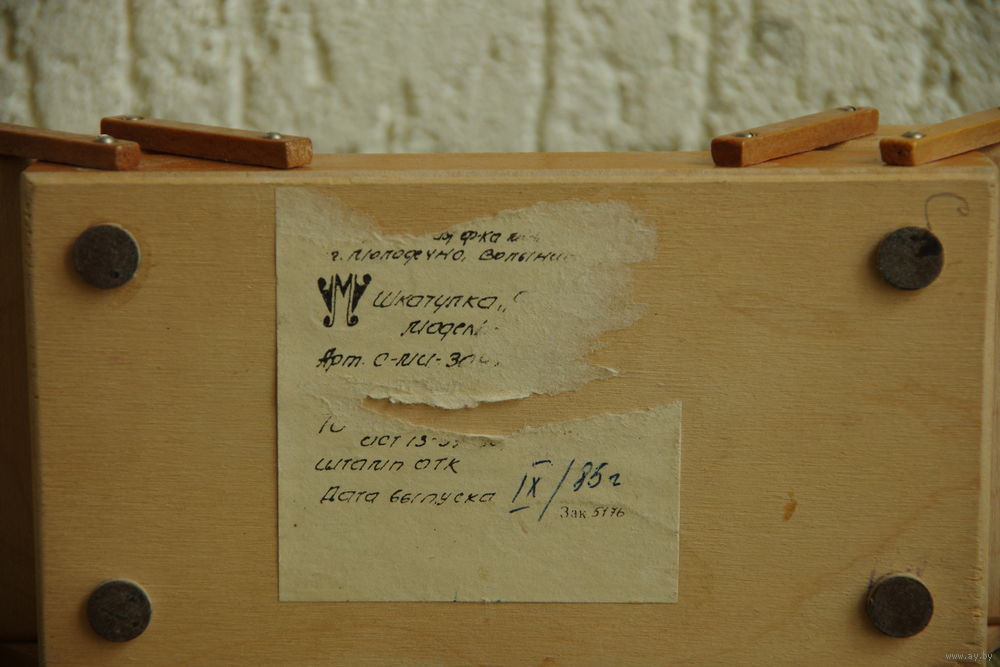 ф-ка
г. Молодечно, Волыни
М Шкатулка „
Модель
Арт. С-МИ-30
ОСТ 13-
Штамп ОТК
Дата выпуска IX/85г
Зак 5176
www.ay.by